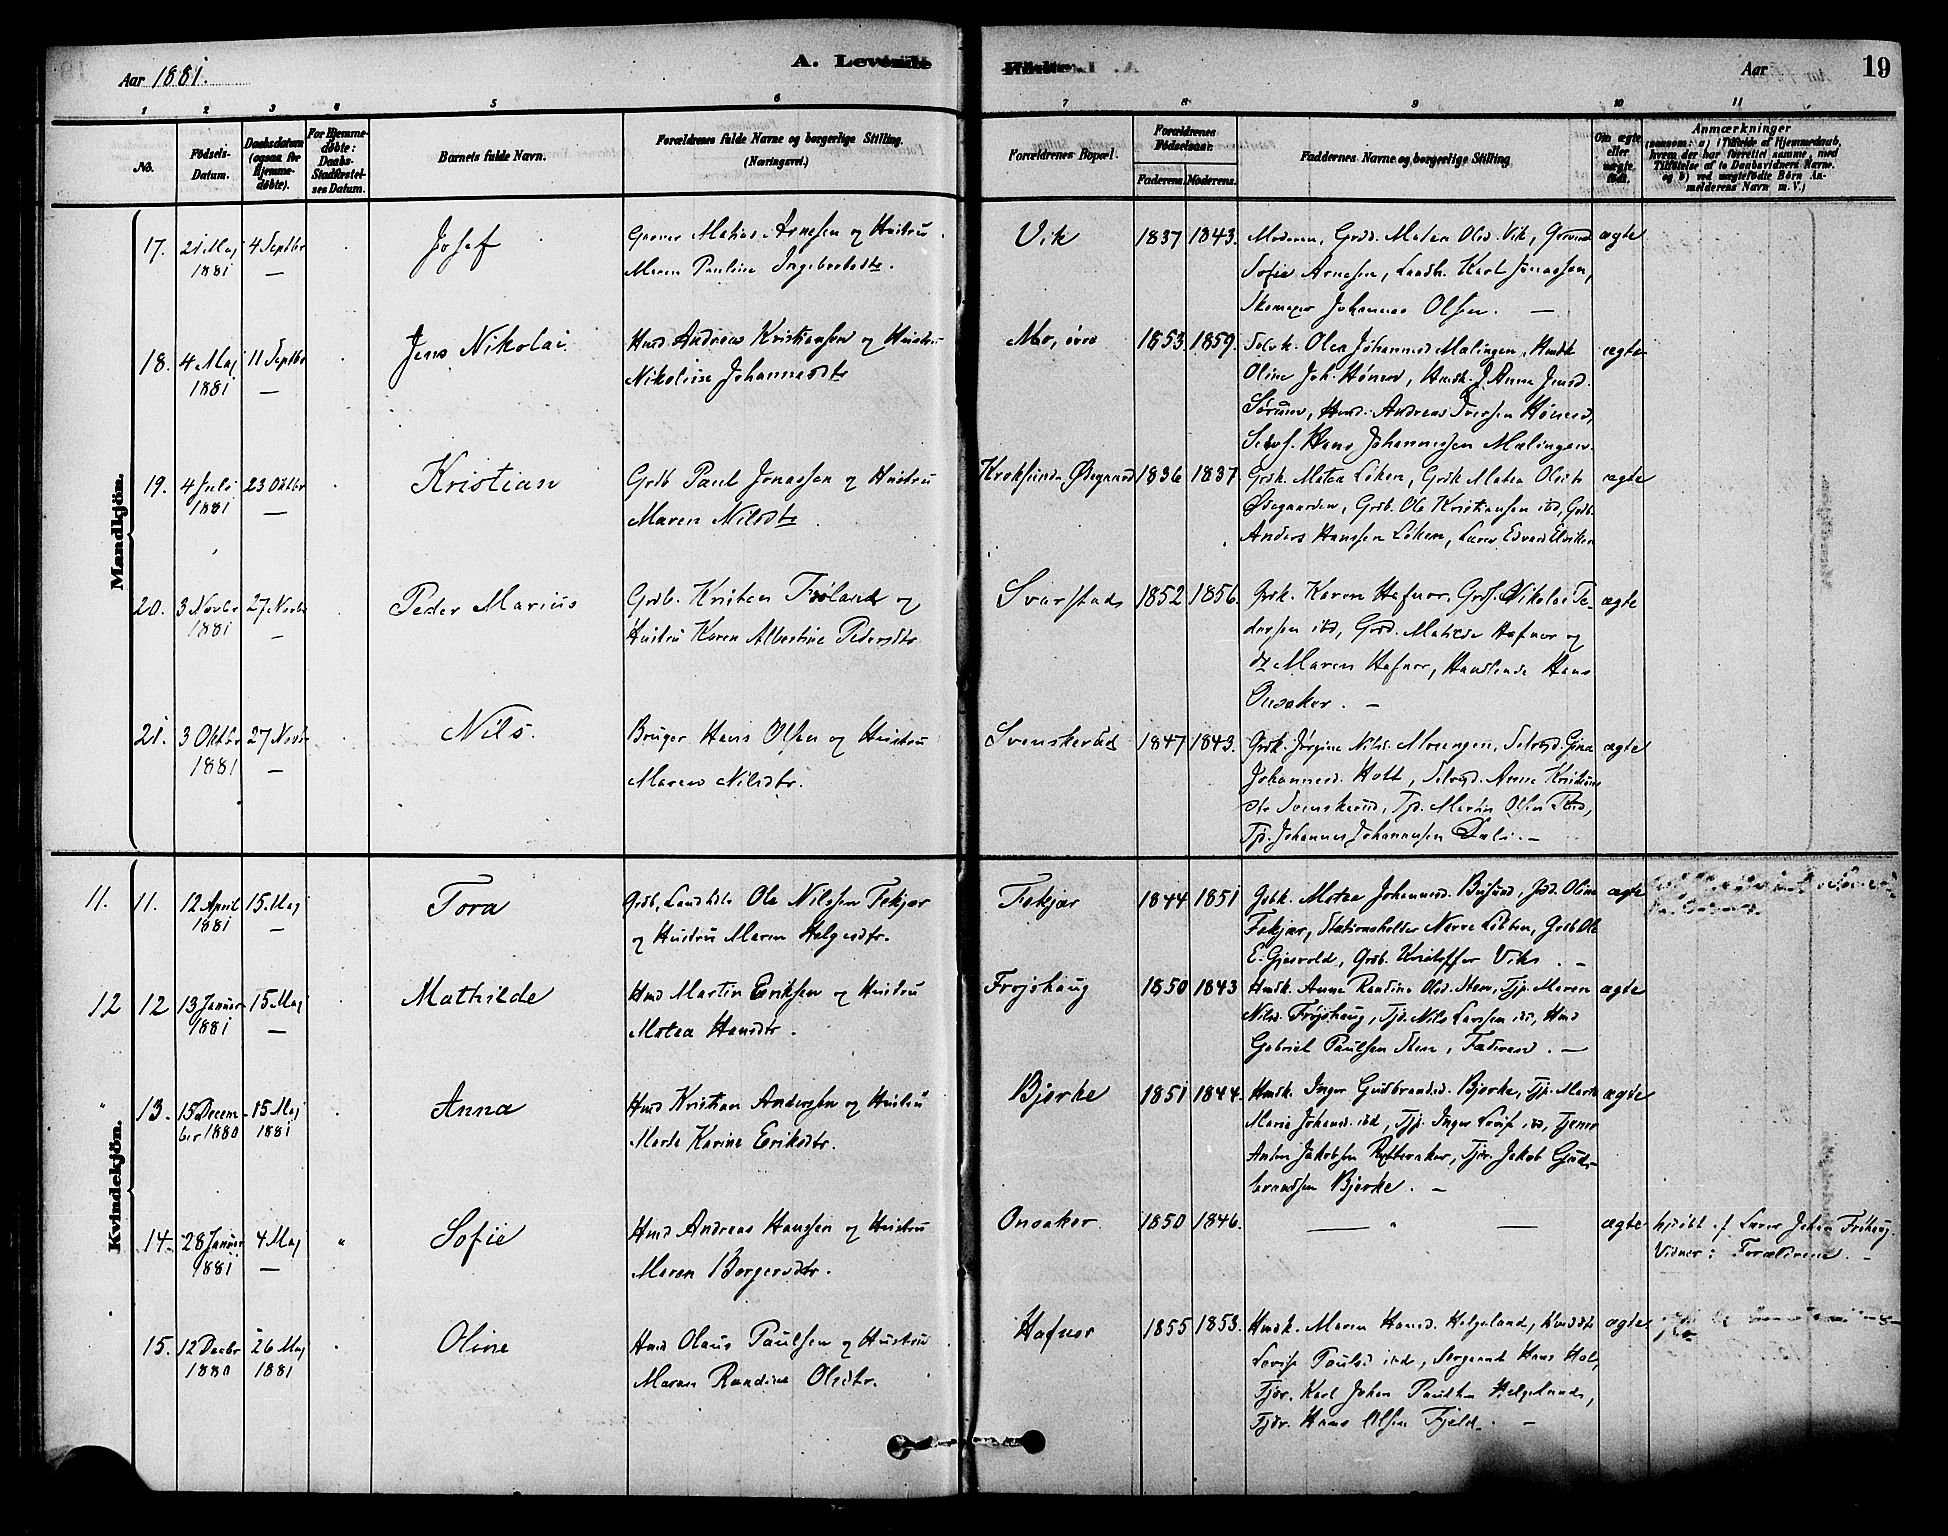 Aar 1881.
A. Levende
Fødte.
Aar
19
1 2 3 4 5 6 7 8 9 10 11
No.
Fødsels-
Datum.
Daabsdatum
(ogsaa for
Hjemme-
døbte).
For Hjemme-
døbte:
Daabs-
Stadfæstel-
ses Datum.
Barnets fulde Navn.
Forældrenes fulde Navne og borgerlige Stilling.
(Næringsvei.)
Forældrenes Bopæl.
Forældrenes
Fødselsaar.
Faderens. Moderens.
Faddernes Navne og borgerlige Stilling
Om ægte
eller
uægte
født.
Anmærkninger
(saasom: a) i Tilfælde af Hjemmedaab,
hvem der har forrettet samme, med
Tilføielse af to Daabsvidners Navne,
og b) ved uægtefødte Børn An-
melderens Navn m. V.)
Mandkjön.
17. 21 Maj 4 Septbr Josef
1881 —
Gaaver Matias Arnesen og Hustru
Maren Pauline Ingebretsdtr.
Vik 1837 1843.
Moderen, Grdd. Matea Olsd. Vik,
Sofie Arnesen, Landh. Karl Jonassen,
Skomager Johannes Olsen. —
ægte
18. 4 Maj 11 Septbr Jens Nikolai.
1881 —
Hmd Andreas Kristiansen og Hustru
Nikoline Johannesdtr
Mo, övre 1853. 1859.
Selvk. Olea Johannesd Malingen, Hmdk
Oline Joh. Hønen, Hmdk. Anne Jensd.
Sørum, Hmd. Andreas Iversen Hønen,
Selvf. Hans Johannessen Malingen.
ægte
19. 4 Juli 23 Oktbr Kristian
1881 —
Grdb Paul Jonassen og Hustru
Maren Nilsdtr.
Kroksund Ødegaard 1836 1837
Grdk. Matea Løken, Grdk Matea Olsdtr
Ødegaarden, Grdb. Ole Kristiansen ibd, Grdb.
Anders Hanssen Løken, Lærer Edvard Elviken
ægte
20. 3 Novbr 27 Novbr Peder Marius
1881 —
Grdb. Kristen Frøland og
Hustru Karen Albertine Pedersdtr.
Svarstad 1852 1856.
Grdk. Karen Hafnor, Grdf. Nikolai Pe-
dersen ibd, Grdd. Matilde Hafnor og
do Maren Hafnor, Handlende Hans
Onsaker. —
ægte
21. 3 Oktbr 27 Novbr Nils.
1881 —
Bruger Hans Olsen og Hustru
Maren Nilsdtr.
Svenskerud 1847 1843.
Grdk. Jørgine Nilsd. Mosengen, Selvsd. Gina
Johannesd. Holt, Selvsd. Anne Kristians
dtr Svenskerud, Tjd. Martin Olsen
Tjd. Johannes Johannesen Dæli. —
ægte
Kvindekjön.
11. 11. 12 April 15 Maj Tora
1881 —
Grdb, Landhdl. Ole Nilssen Fekjær
og Hustru Maren Helgesdtr.
Fekjær 1844 1851
Grdk. Matea Johannesd. Busund, Oline
Fekjær, Stationsholder Nerre Libben, Grdb Ole
E. Gjesvold, Grdb. Kristoffer Vik. —
ægte
12 12 13 Januar 15 Maj Mathilde
1881 —
Hmd Martin Eriksen og Hustru
Matea Hansdtr.
Frøjshaug 1850 1843
Hmdk. Anne Randine Olsd. Sten, Tjp. Maren
Nilsd. Frøjshaug, Tjd. Nils Larssen ibd, Hmd
Gabriel Paulsen Sten, Faderen. —
ægte
" 13. 15 Decem- 15 Maj Anna
ber 1880 1881
Hmd Kristian Anderssen og Hustru
Marte Karine Eriksdtr.
Bjerke 1851 1844.
Hmdk. Inger Gudbrandsd. Bjerke, Tjp. Marte
Marie Johansd. ibd, Tjp. Inger Lovise ibd, Tjener
Anton Jakobsen Rytteraker, Tjer. Jakob Gud-
brandsen Bjerke. —
ægte
14 28 Januar 4 Maj " Sofie
1881 —
Hmd Andreas Hanssen og Hustru
Maren Borgersdtr.
Onsaker. 1850 1846. — " —
ægte
hjdøbt af Lærer Johan Frøhaug.
Vidner: Forældrene. —
15. 12 Decbr 26 Maj Oline
1880 1881
Hmd Olaus Paulsen og Hustru
Maren Randine Olsdtr.
Hafnor 1855 1853.
Hmdk. Maren Hansd. Helgeland,
Lovise Paulsd ibd, Sergeant Hans Hol,
Tjdr. Karl Johan Paulsen Helgeland,
Tjdr. Hans Olsen Fjeld. —
ægte